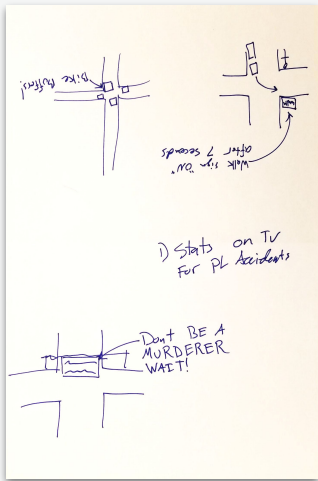 Bike Buffers!
Walk sign "ON"
after 7 seconds
1) Stats on TV
For PL Accidents
Don't BE A
MURDERER
WAIT!